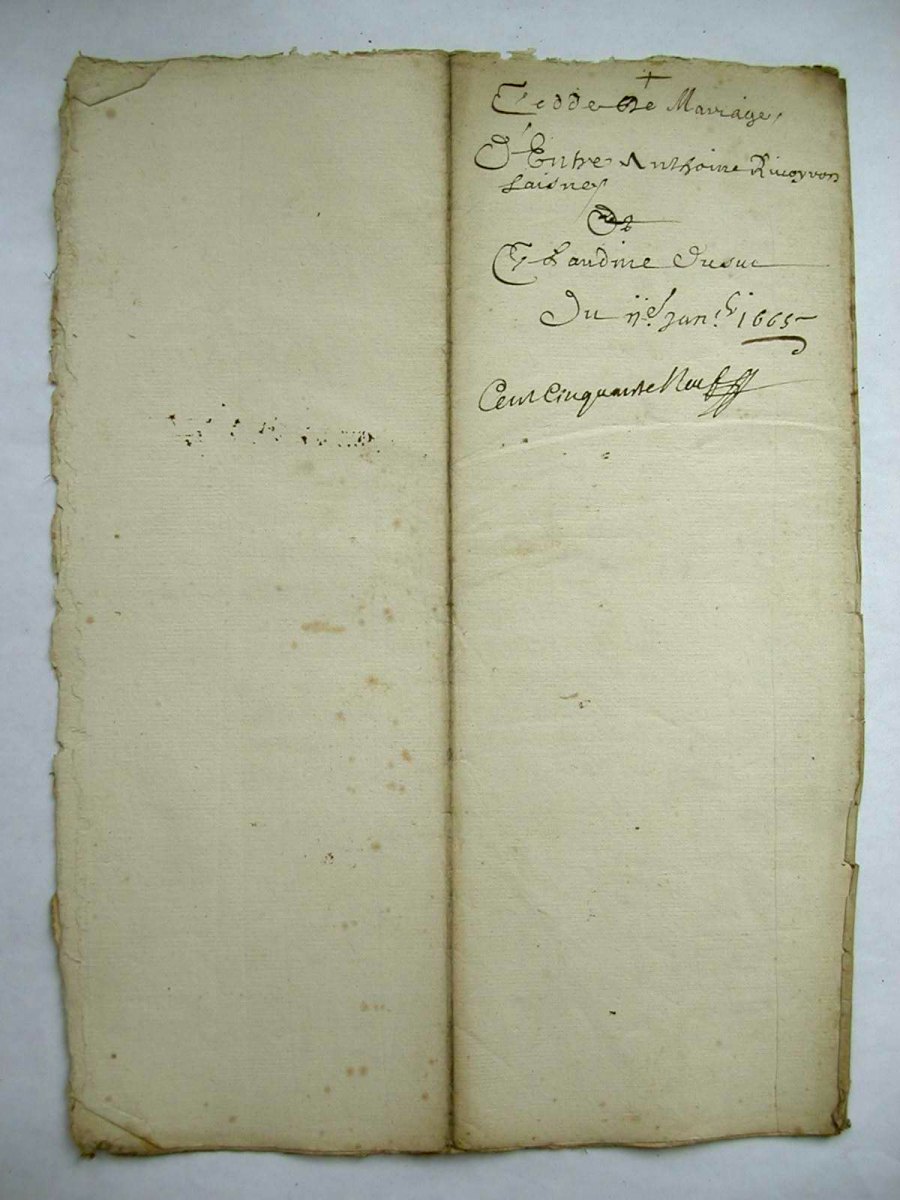 +
Cedde de Mariage,
D'Entre Anthoine
Laisney
Et
Claudine Dusuc
Du Jan.er 1665
Cent Cinquante Neuf